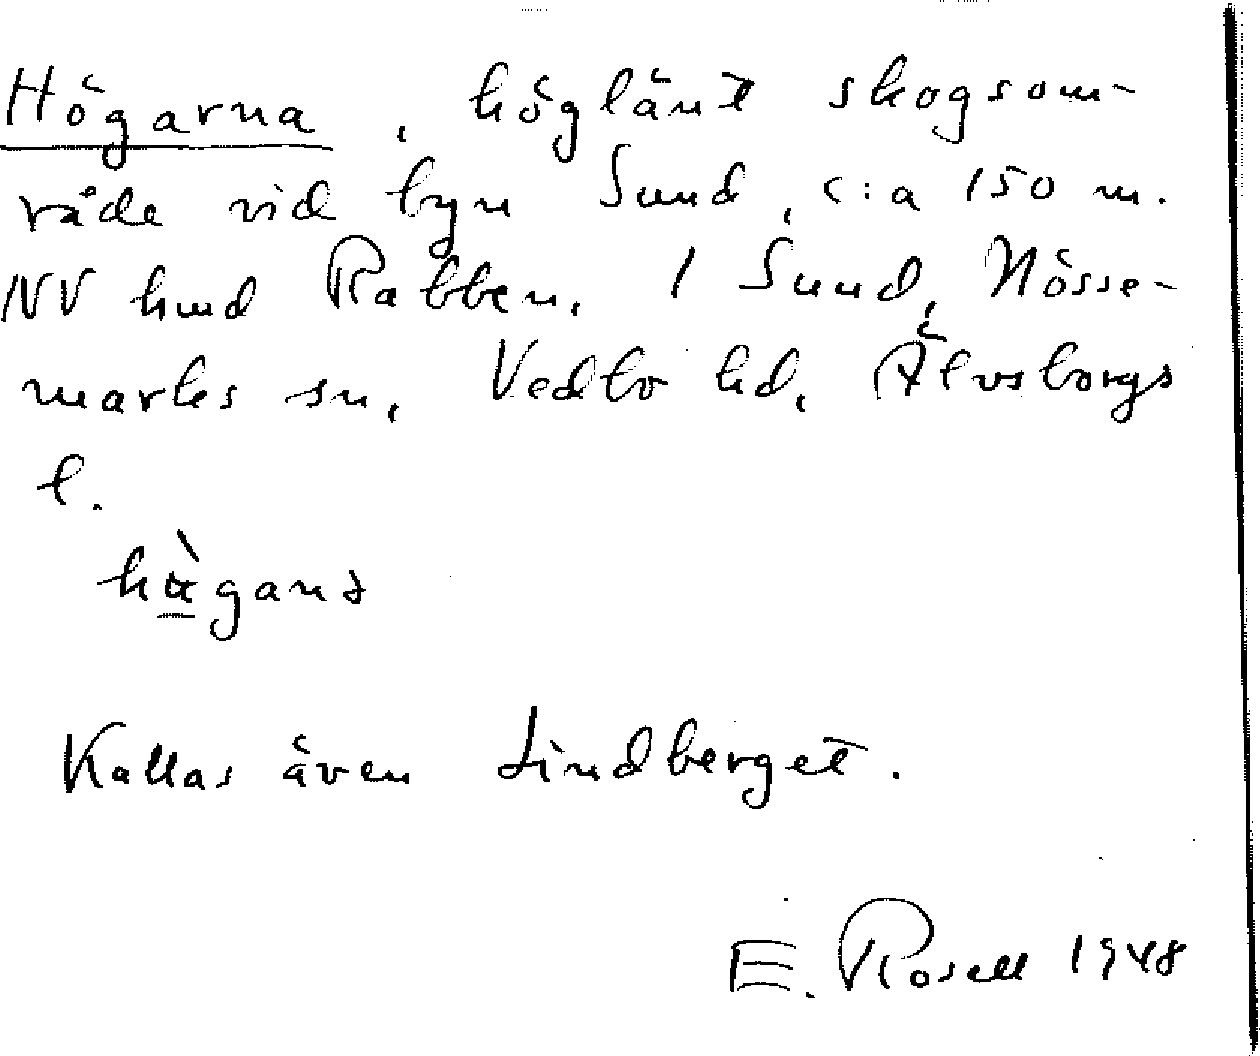 Högarna, höglänt skogsom-
råde vid byn Sund, c:a 150 m.
NV hmd Rabben. I Sund, Nösse-
marks sn, Vedbo hd, Älvsborgs
l.
Kallas även Lindberget.
E. Rosell 1948